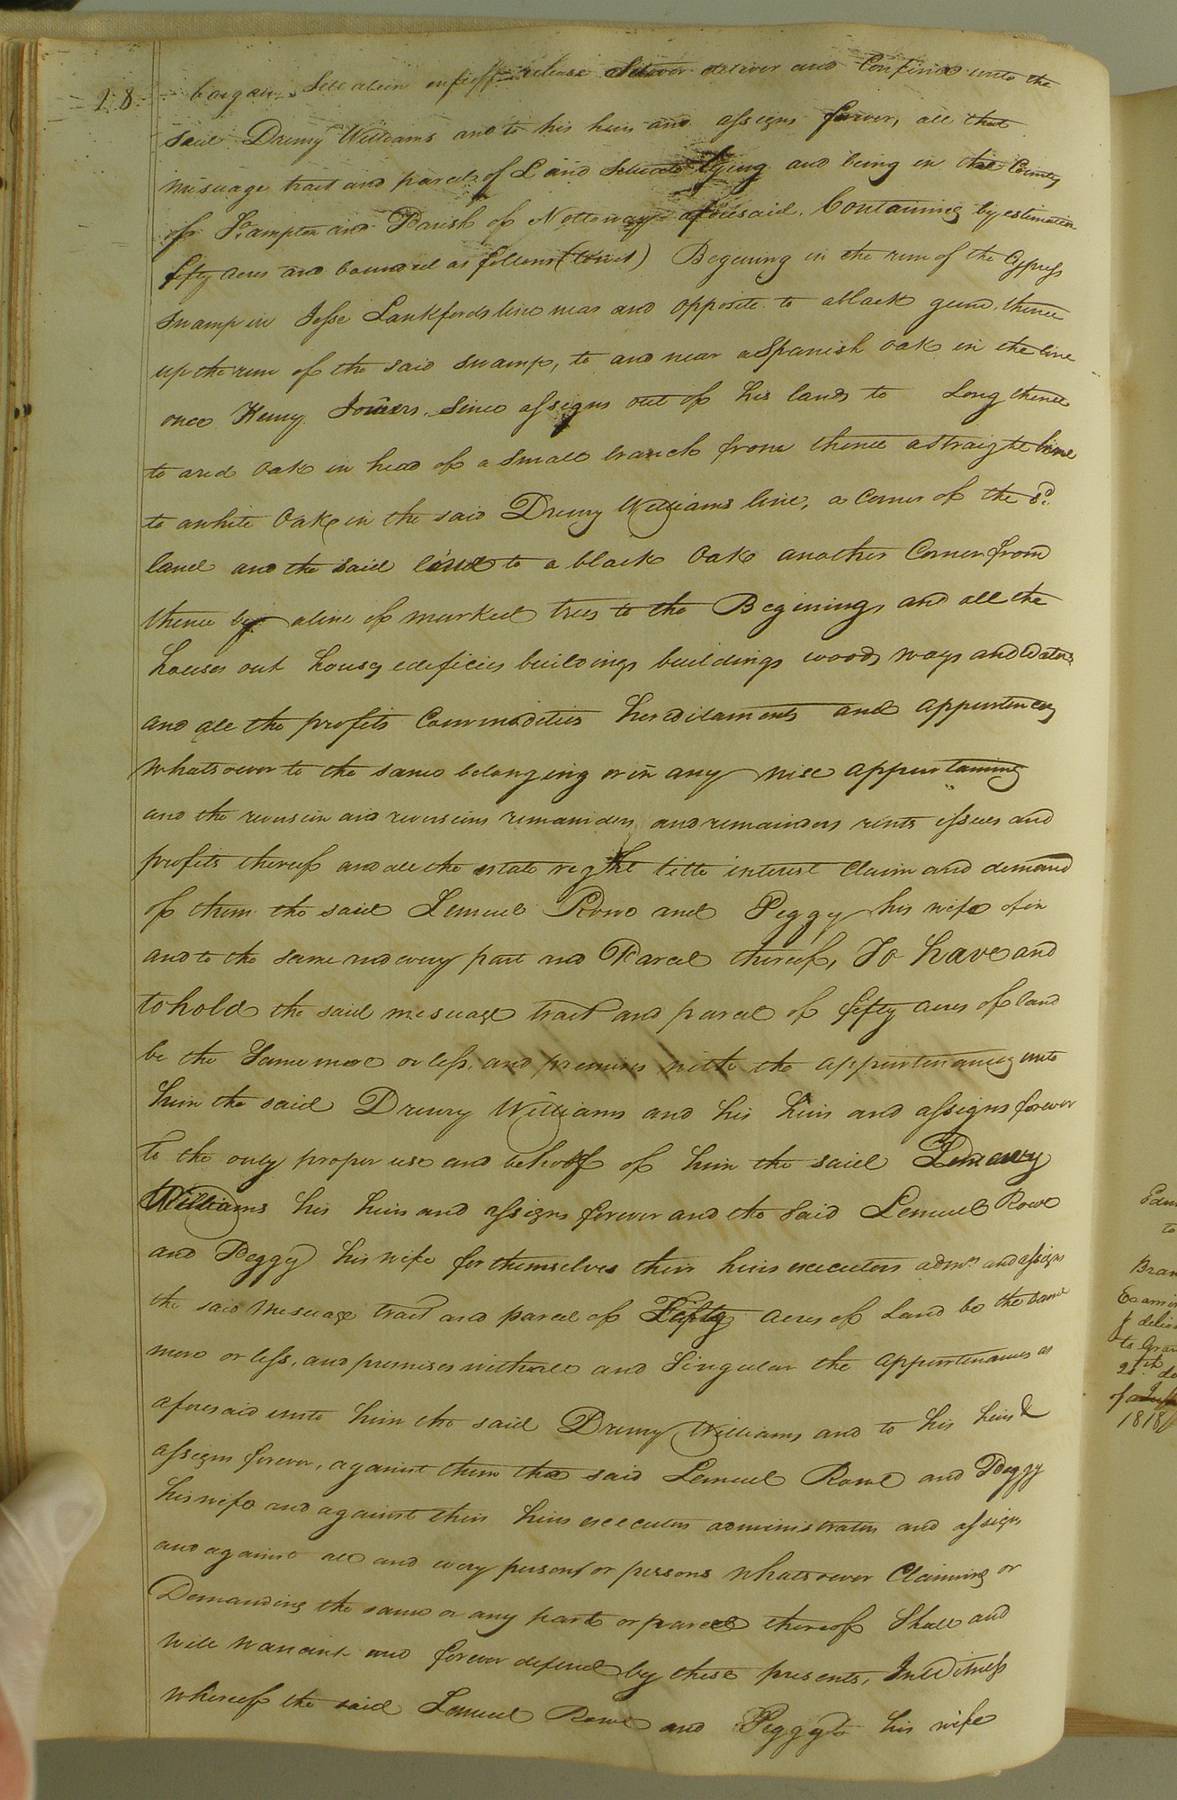 28
bargain Sell alien enfeoff release deliver and Confirm unto the
said Drewry Williams and to his heirs and assigns forever, all that
mesuage tract and parcel of Land Situate lying and being in the County
of S. Hampton and Parish of Nottoway aforesaid. Containing by estimation
fifty acres and bounded as follows (towit) Begining in the run of the Cypress
Swamp in Jesse Lankfords line near and opposite to a black gum, thence
up the run of the said swamp, to and near a Spanish oak in the line
once Henry Joiners, Since assigns out of his lands to Long thence
to a red Oak in head of a small branch from thence a straight line
to a white Oak in the said Drewry Williams line, a Corner of the sd.
land and the said line to a black Oak another Corner from
thence by a line of marked trees to the Begining, and all the
houses out houses edeficies buildings buildings woods ways and Waters
and all the profits Commodities hereditaments and appurtencies
Whatsoever to the same belonging or in any wise appurtaining
and the reversion and reversions remainders and remainders rents issues and
profits thereof and all the estate right title interest Claim and demand
of them the said Lemuel Rowe and Peggy his wife of in
and to the same and every part and Parcel thereof, To have and
to hold the said mesuage tract and parcel of fifty acres of land
be the Same more or less, and premises with the appurtenances unto
him the said Drewry Williams and his heirs and assigns forever
to the only proper use and behoof of him the said Drewry
Williams his heirs and assigns forever and the Said Lemuel Rowe
and Peggy his wife for themselves their heirs executors admrs. and assigns
the said mesuage tract and parcel of Fifty acres of Land be the same
more or less, and premises with all and Singular the appurtenances as
aforesaid unto him the said Drewry Williams and to his heirs &
assigns forever, against them the said Lemuel Rowe and Peggy
his wife and against their heirs executors administrators and assigns
and against all and every person or persons whatsoever Claiming or
Demanding the same or any part or parcel thereof Shall and
will warrant and forever defend by these presents, In Witness
whereof the said Lemuel Rowe and Peggy his wife
to
Bran
Examin
& deliv
to Gra
of
1818